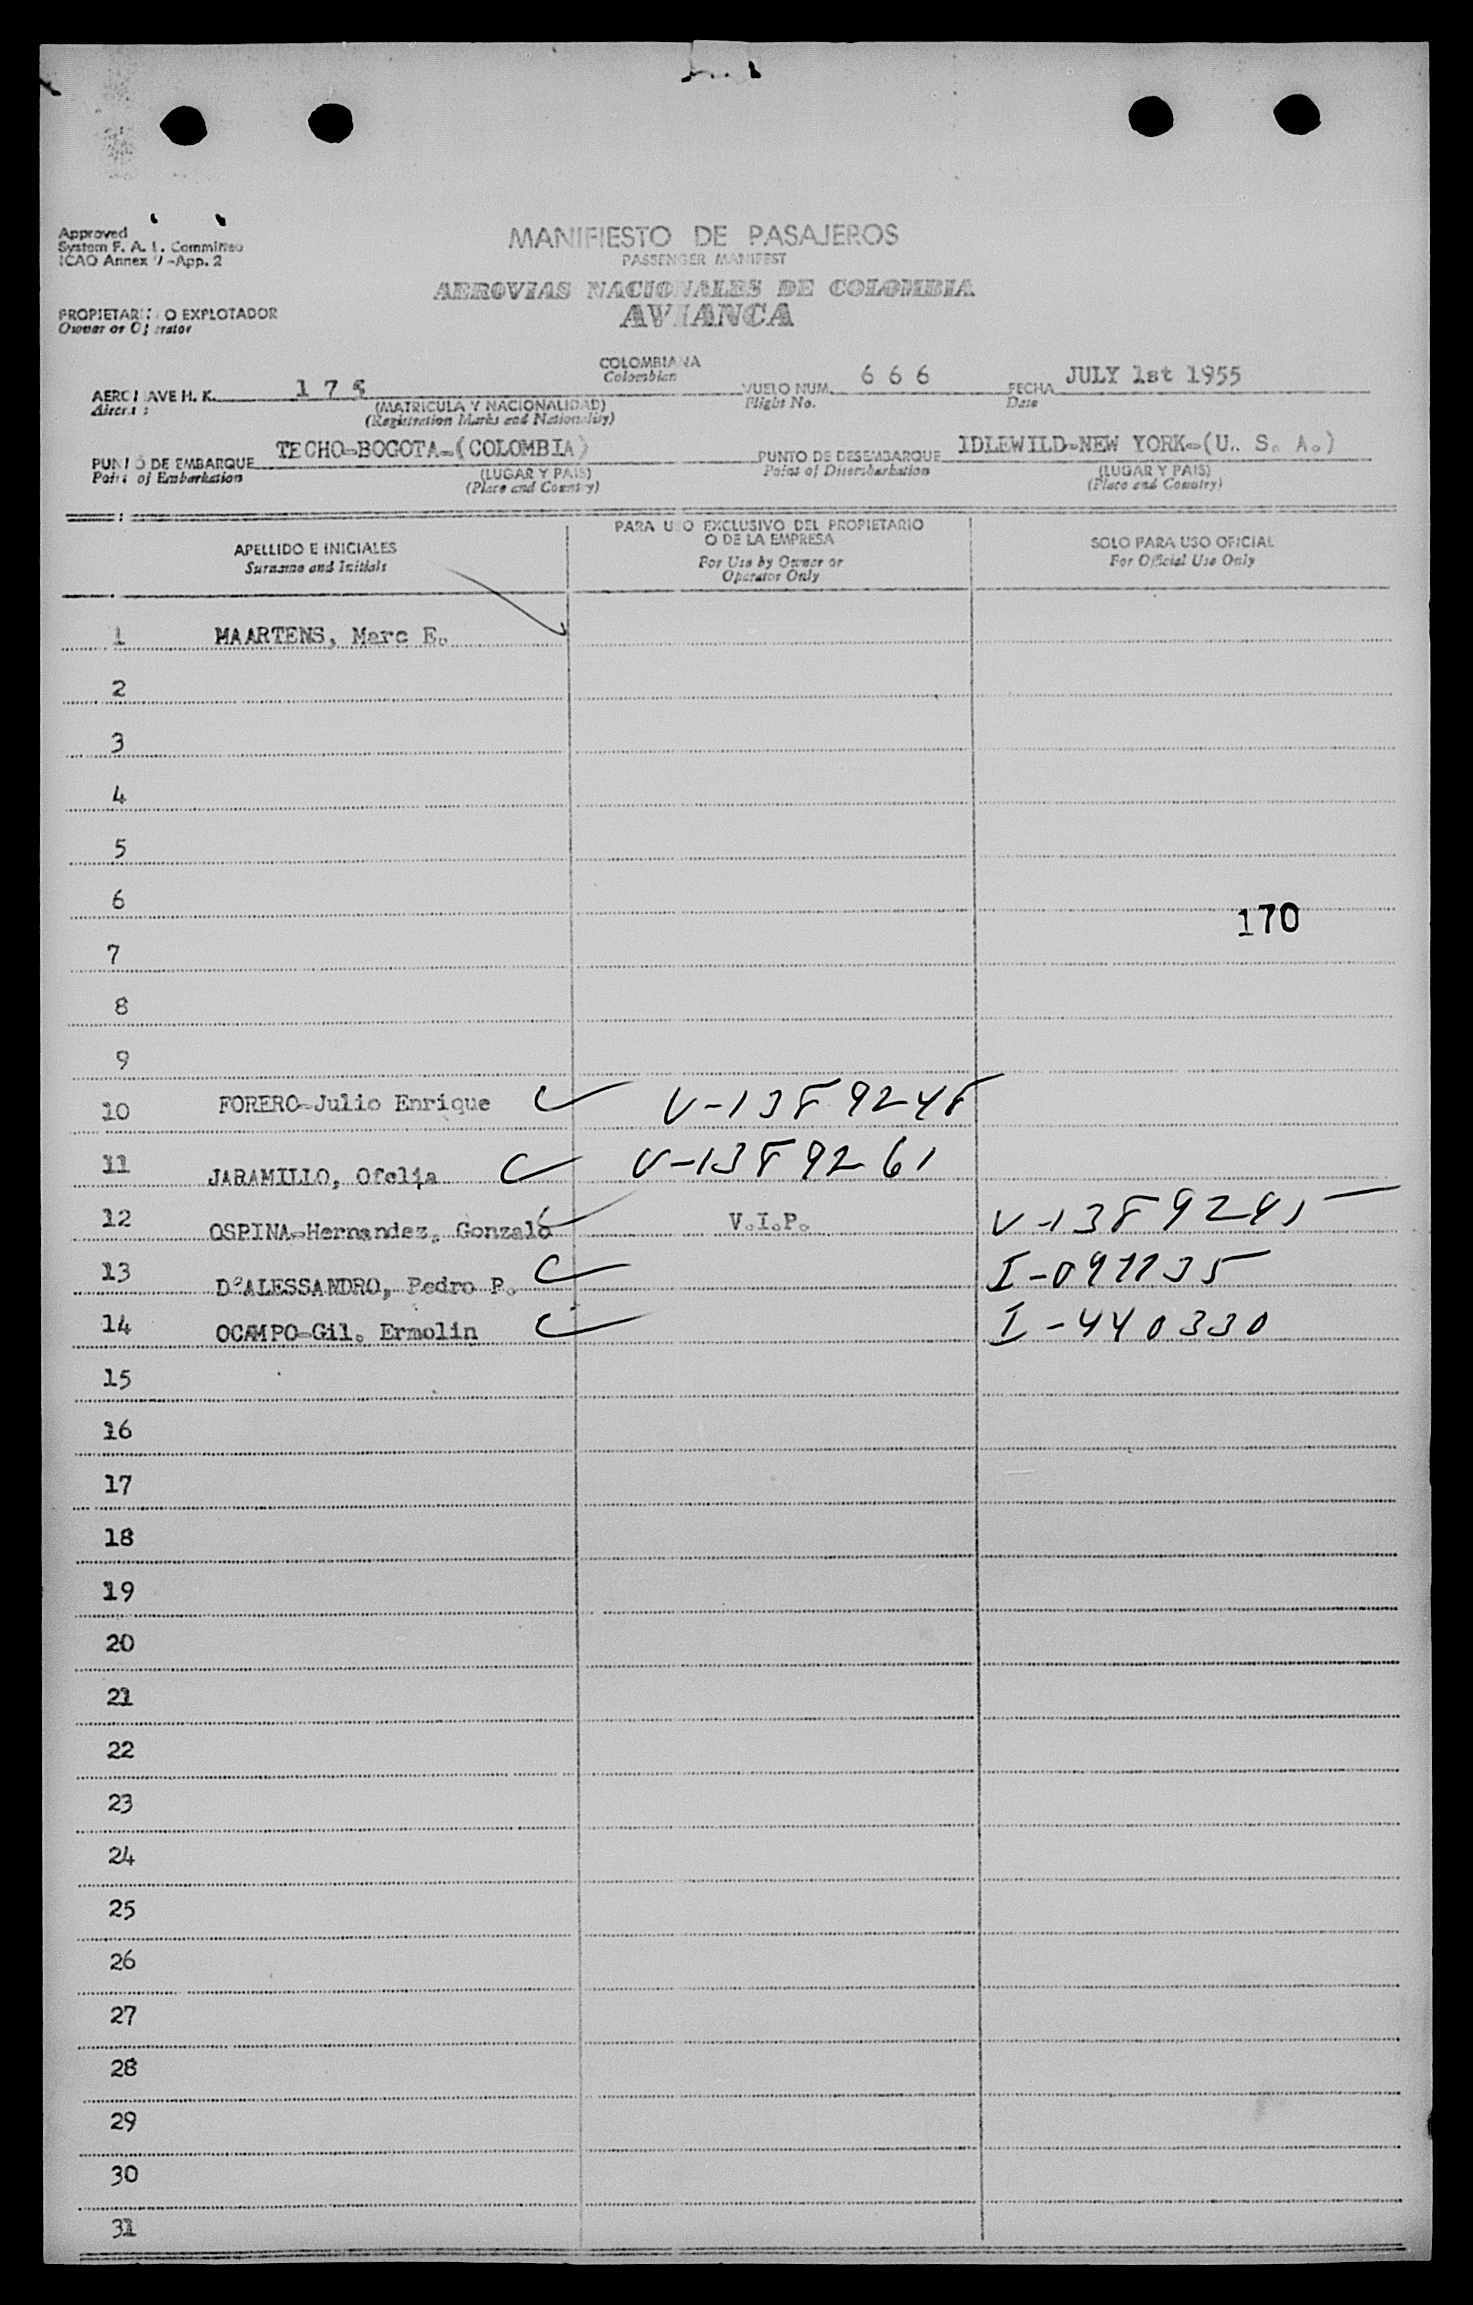 Approved
System F. A. L. Committee
ICAO Annex 9 -App. 2
MANIFIESTO DE PASAJEROS
PASSENGER MANIFEST
AEROVIAS NACIONALES DE COLOMBIA
AVIANCA
PROPIETARIO O EXPLOTADOR
Owner or Operator
COLOMBIANA
Colombian
AERONAVE H. K. 175 VUELO NUM. 666 FECHA JULY 1st 1955
Aircraft (MATRICULA Y NACIONALIDAD) Flight No. Date
(Registration Marks and Nationality)
PUNTO DE EMBARQUE TECHO-BOGOTA-(COLOMBIA) PUNTO DE DESEMBARQUE IDLEWILD-NEW YORK-(U. S. A.)
Point of Embarkation (LUGAR Y PAIS) Point of Disembarkation (LUGAR Y PAIS)
(Place and Country) (Place and Country)
APELLIDO E INICIALES
Surname and Initials
PARA USO EXCLUSIVO DEL PROPIETARIO
O DE LA EMPRESA
For Use by Owner or
Operator Only
SOLO PARA USO OFICIAL
For Official Use Only
1 MAARTENS, Marc E.
2
3
4
5
6
170
7
8
9
10 FORERO-Julio Enrique V-1389248
11 JARAMILLO, Ofelia V-1389261
12 OSPINA-Hernandez, Gonzalo V.I.P.
13 D'ALESSANDRO, Pedro P.
14 OCAMPO-Gil. Ermolin I-440330
15
16
17
18
19
20
21
22
23
24
25
26
27
28
29
30
31